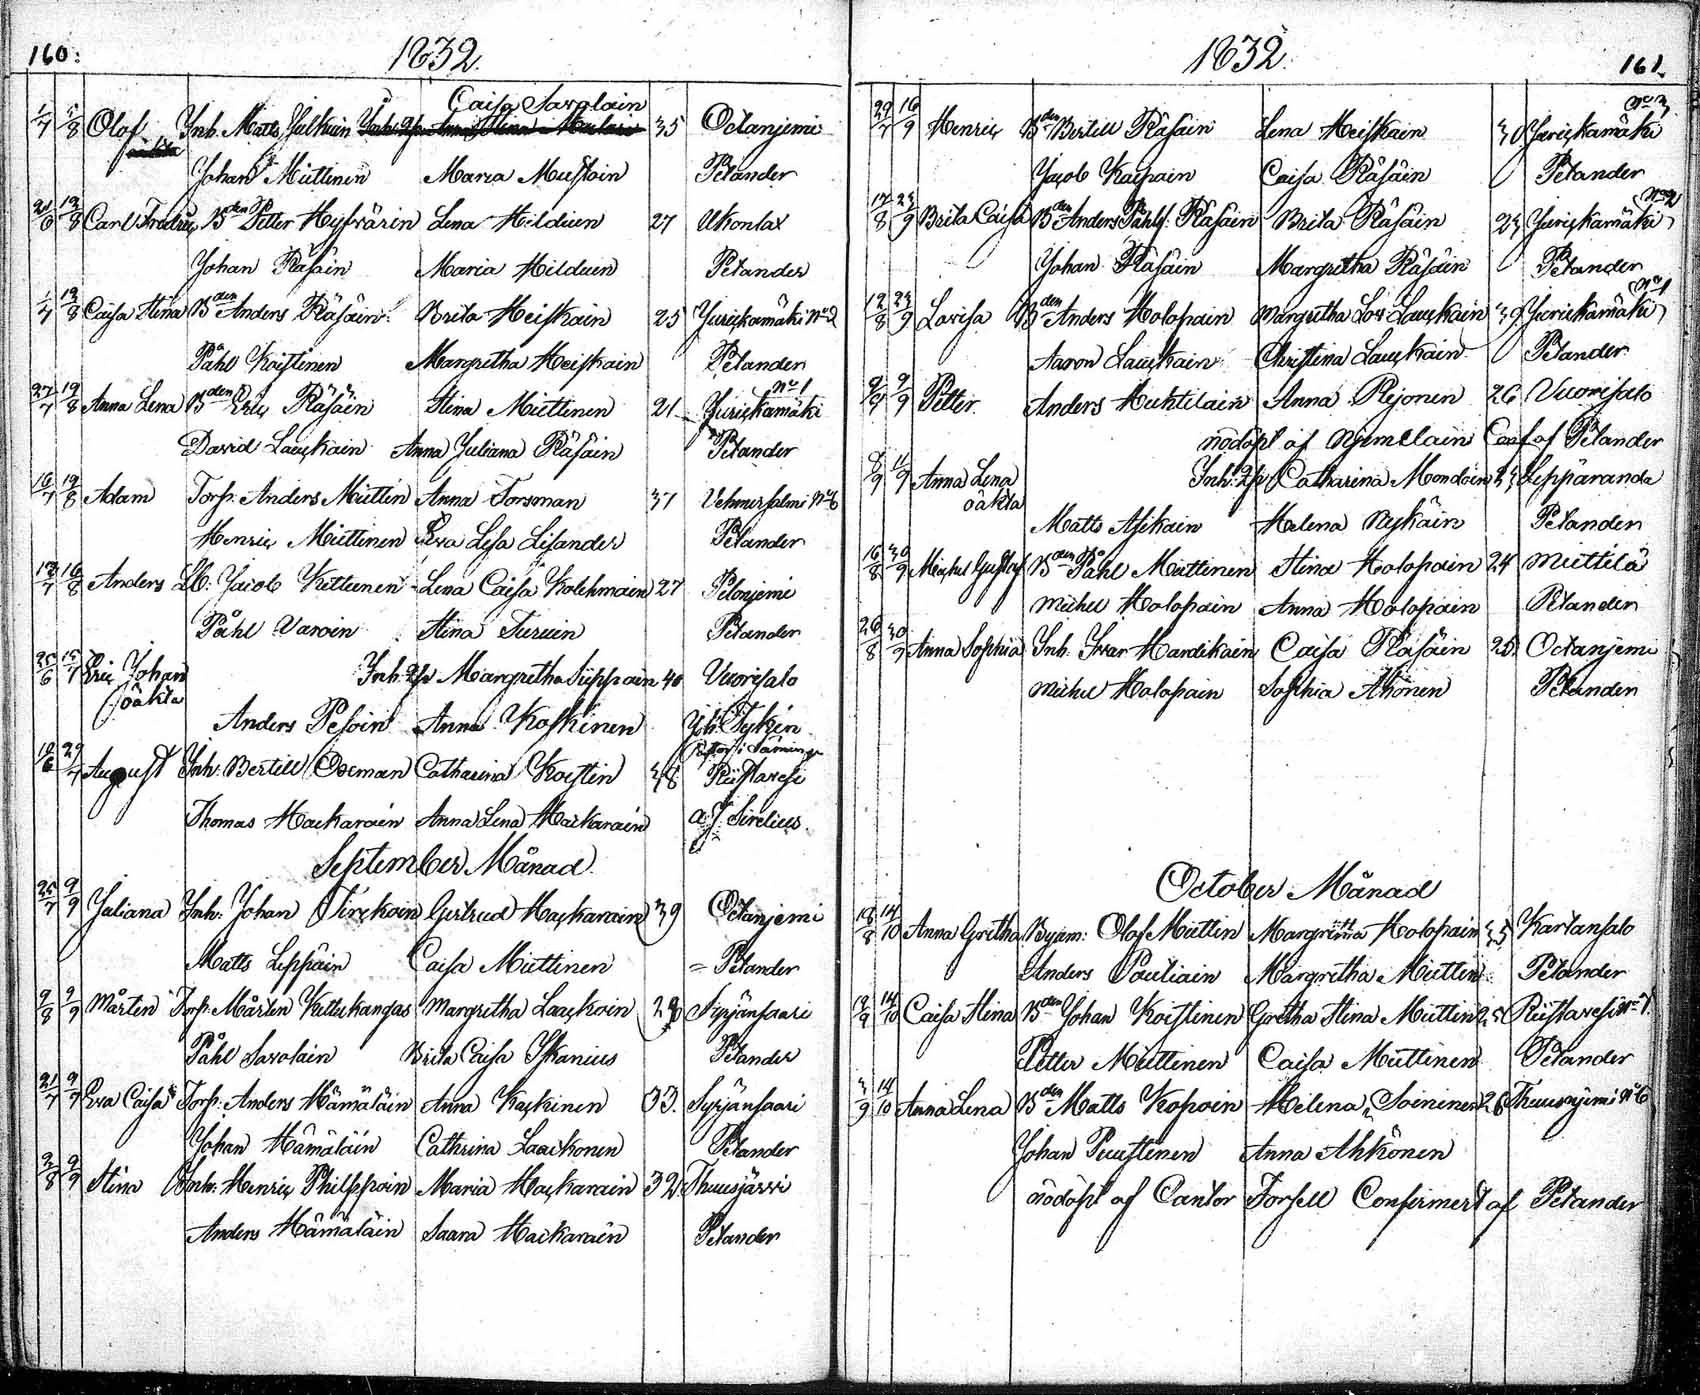 160:
1832.
Caisa Savolain
1/7 5/8 Olof Inh. Matts Julkuin 35 Octanjemi
Johan Miettinen Maria Mustoin Petander
12/8 Carl Fredric Bden Petter Hyfvärin Lena Hilduin 27 Ukonlax
Johan Räsäin Maria Hilduin Petander
1/7 12/8 Caisa Stina Bden Anders Räsäin Brita Heiskain 25 Yurickamäki No 2
Påhl Koistinen Margretha Heiskain Petander
No 1
27/7 19/8 Anna Lena Bden Eric Räsäin Stina Miettinen 21 Yurickamäki
David Lauckain Anna Juliana Räsäin Petander
16/7 19/8 Adam Torp. Anders Miettin Anna Forsman 37 Vehmersalmi No 6
Henric Miettinen Eva Lisa Lisander Petander
16/8 Anders Jacob Kettunen Lena Caisa Kolehmain 27 Petonjemi
Påhl Varoin Stina Turuin Petander
25/6 15/7 Eric Johan Inh. Margretha Sieppain 40 Vuorisalo
oäkta
Anders Pesoin Anna Koskinen Joh: Tyskin
19/6 29/7 August Inh. Bertill Oxman Catharina Koistin 38 Riistavesi
Thomas Hackarain Anna Lena Hackarain A. J. Sirelius
September Månad.
25/7 9/9 Juliana Inh: Johan Tirckoin Gertrud Hackarain 39 Octanjemi
Matts Leppäin Caisa Miettinen = Petander
9/8 9/9 Mårten Torp. Mårten Kettukangas Margretha Lauckain Syrjänsaari
Påhl Savolain Brita Caisa Petander
21/7 9/9 Eva Caisa Torp. Anders Hämäläin Anna Kackinen 33. Syrjänsaari
Johan Hämäläin Cathrina Laackonen Petander
2/8 9/9 Stina Inh. Henric Philppoin Maria Hackarain 32 Thuusjärvi
Anders Hämäläin Saara Hackarain Petander
1832.
161.
No 3
29/7 16/9 Henric Bden Bertill Räsäin Lena Heiskain 30 Yurickamäki
Jacob Karpain Caisa Räsäin Petander
No 2
17/8 23/9 Brita Caisa Bden Anders Påhls. Räsäin Brita Räsäin 23 Yurickamäki
Johan Räsäin Margretha Räsäin Petander
No 1
12/8 23/9 Lovisa Bden Anders Holopain Margretha Lauckain 39 Yurickamäki
Aaron Lauckain Christina Lauckain Petander
9/9 Petter Anders Huktilain Anna Rejonen 26 Vuorisalo
nödöpt af Petander
9/9 Anna Lena Inh. Catharina Mondain 23 Leppäranda
oäkta
Matts Asikain Helena Nykäin Petander
16/8 30/9 Michel Gustaf Bden Påhl Miettinen Stina Holopain 24 Miettilä
Michel Holopain Anna Holopain Petander
26/8 30/9 Anna Sophia Inh: Ivar Hardikain Caisa Räsäin 25 Octanjemi
Michel Holopain Sophia Ahonen Petander
October Månad
18/8 14/10 Anna Gretha Byam: Olof Miettin Holopain 35 Kartansalo
Anders Pouliain Margretha Miettin Petander
14/10 Caisa Stina Bden Johan Koistinen Gretha Stina Miettin 25 Riistavesi No 7.
Petter Miettinen Caisa Miettinen Petander
3/9 14/10 Anna Lena Bden Matts Kopoin Helena Soininen 26 Thuusnjemi No 6
Johan Puustinen Anna Ahkönen
nödöpt af Cantor Forsell Confirmert af Petander